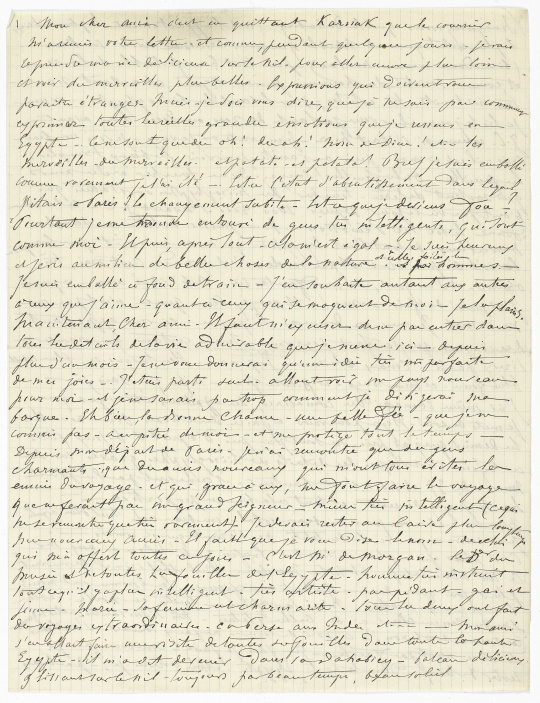 Mon cher ami c'est en quittant Karnak que le courrier
m'a remis votre lettre - et comme pendant quelques jours - je vais
reprendre ma vie délicieuse sur le Nil - pour aller encore plus loin
et voir des merveilles plus belles - Expressions qui doivent vous
paraître étranges - Mais je dois vous dire, que je ne sais pas comment
exprimer toutes les réelles grandes émotions que je ressens en
Egypte - Ce ne sont que des oh! des ah! Nom de Dieu! - les
merveilles - des merveilles - et patati - et patata! Bref je suis emballé
comme rarement je l'ai été - Est-ce l'état d'abrutissement dans lequel
j'étais à Paris? le changement subit - Est-ce que je deviens fou?
Pourtant je suis entouré de gens très intelligents, qui sont
comme moi - Et puis, après tout - cela m'est égal - Je suis heureux
et je vis au milieu de belles choses de la nature - et celles faites par les hommes -
Je suis emballé à fond de train - J'en souhaite autant aux autres
à ceux que j'aime - quant à ceux qui se moquent de moi - Je les plains.
Maintenant cher ami - Il faut m'excuser de ne pas entrer dans
tous les détails de la vie admirable que je mène ici - depuis
plus d'un mois - Je ne vous donnerai qu'une idée très imparfaite
de mes joies - J'étais parti seul - allant voir un pays nouveau
pour moi - et je ne savais pas trop comment je dirigerai ma
barque - Eh bien, la bonne chance - une belle fée - que je ne
connais pas - a eu pitié de moi - et me protège tout le temps -
Depuis mon départ de Paris - Je n'ai rencontré que des gens
charmants, que des amis nouveaux qui m'ont tous évités les
ennuis du voyage - et qui grâce à eux, me font faire le voyage
que ne ferait pas un grand Seigneur - même très intelligent (ce qui
ne se rencontre que très rarement) Je devais rester au Caire plus longtemps
nouveaux amis - Il faut que je vous dise le nom - de celui
qui m'a offert toutes ces joies - C'est Mr de Morgan - le Dr du
Musée et de toutes les fouilles de l'Egypte - homme très instruit
tout ce qu'il y a de plus intelligent - très artiste - pas pédant - gai et
jeune - Marié - sa femme est charmante - tous les deux ont fait
des voyages extraordinaires - en Perse aux Indes et - - - Mon ami
s'en allait faire une visite de toutes ses fouilles dans toute la haute
Egypte - il m'a dit de venir dans sa dahabieh - bateau délicieux
glissant sur le Nil - toujours par beau temps, beau soleil